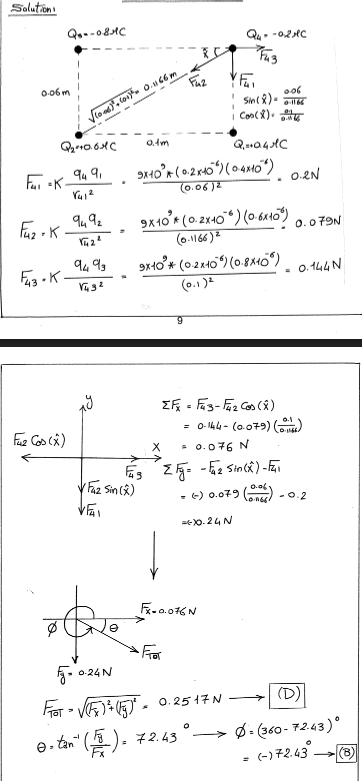 Solution:
Q₃=-0.8μC Q₄=-0.2μC
x̂ F43
F42
F41
0.06m √(0.06)²+(0.1)² = 0.1166m
sin(x̂) = 0.06/0.1166
cos(x̂) = 0.1/0.1166
Q₂=+0.6μC 0.1m Q₁=+0.4μC
F41 = K q4 q1 / r41² = 9x10⁹*(0.2x10⁻⁶)(0.4x10⁻⁶) / (0.06)² = 0.2N
F42 = K q4 q2 / r42² = 9x10⁹*(0.2x10⁻⁶)(0.6x10⁻⁶) / (0.1166)² = 0.079N
F43 = K q4 q3 / r43² = 9x10⁹*(0.2x10⁻⁶)(0.8x10⁻⁶) / (0.1)² = 0.144N
9
y
F42 Cos(x̂) x
F43
F42 Sin(x̂)
F41
ΣFx = F43 - F42 Cos(x̂)
= 0.144 - (0.079)(0.1/0.1166)
= 0.076 N
ΣFy = -F42 Sin(x̂) - F41
= (-) 0.079 (0.06/0.1166) - 0.2
= (-)0.24 N
Fx=0.076N
Φ θ
FTOT
Fy = 0.24N
FTOT = √(Fx)²+(Fy)² = 0.2517N → (D)
θ = tan⁻¹(Fy/Fx) = 72.43° → Φ = (360-72.43)°
= (-)72.43° → (B)